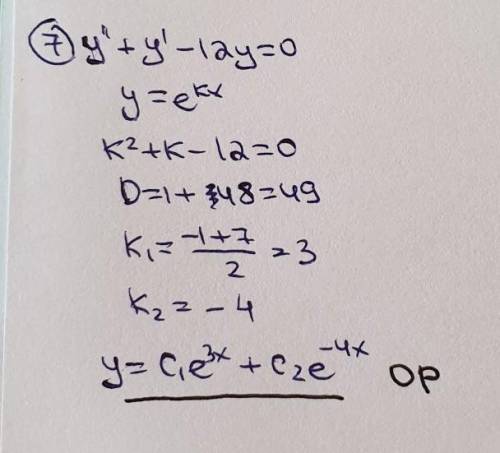 ⑦ y'' + y' - 12y = 0
y = e^{kx}
k² + k - 12 = 0
D = 1 + 48 = 49
k₁ = \frac{-1+7}{2} = 3
k₂ = -4
y = C₁e^{3x} + C₂e^{-4x} OP